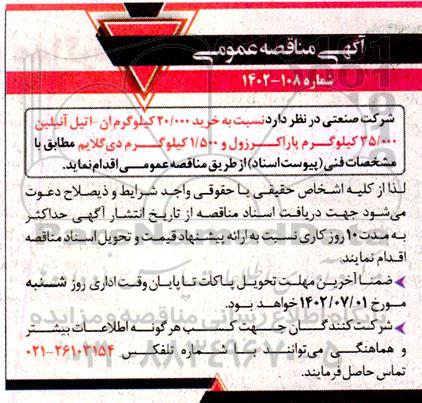 آگهی مناقصه عمومی
شماره ۱۰۸-۱۴۰۲
شرکت صنعتی در نظر دارد نسبت به خرید ۲۰/۰۰۰ کیلوگرم ان-اتیل آنیلین
۳۵/۰۰۰ کیلوگرم پاراکرزول و ۱/۵۰۰ کیلوگرم دی‌گلایم مطابق با
مشخصات فنی (پیوست اسناد) از طریق مناقصه عمومی اقدام نماید.
لذا از کلیه اشخاص حقیقی یا حقوقی واجد شرایط و ذیصلاح دعوت
می‌شود جهت دریافت اسناد مناقصه از تاریخ انتشار آگهی حداکثر
به مدت ۱۰ روز کاری نسبت به ارائه پیشنهاد قیمت و تحویل اسناد مناقصه
اقدام نمایند.
ضمنا آخرین مهلت تحویل پاکات تا پایان وقت اداری روز شنبه
مورخ ۱۴۰۲/۰۷/۰۱ خواهد بود.
شرکت‌کنندگان جهت کسب هرگونه اطلاعات بیشتر
و هماهنگی می‌توانند با شماره تلفکس ۲۶۱۰۳۱۵۴-۰۲۱
تماس حاصل فرمایند.